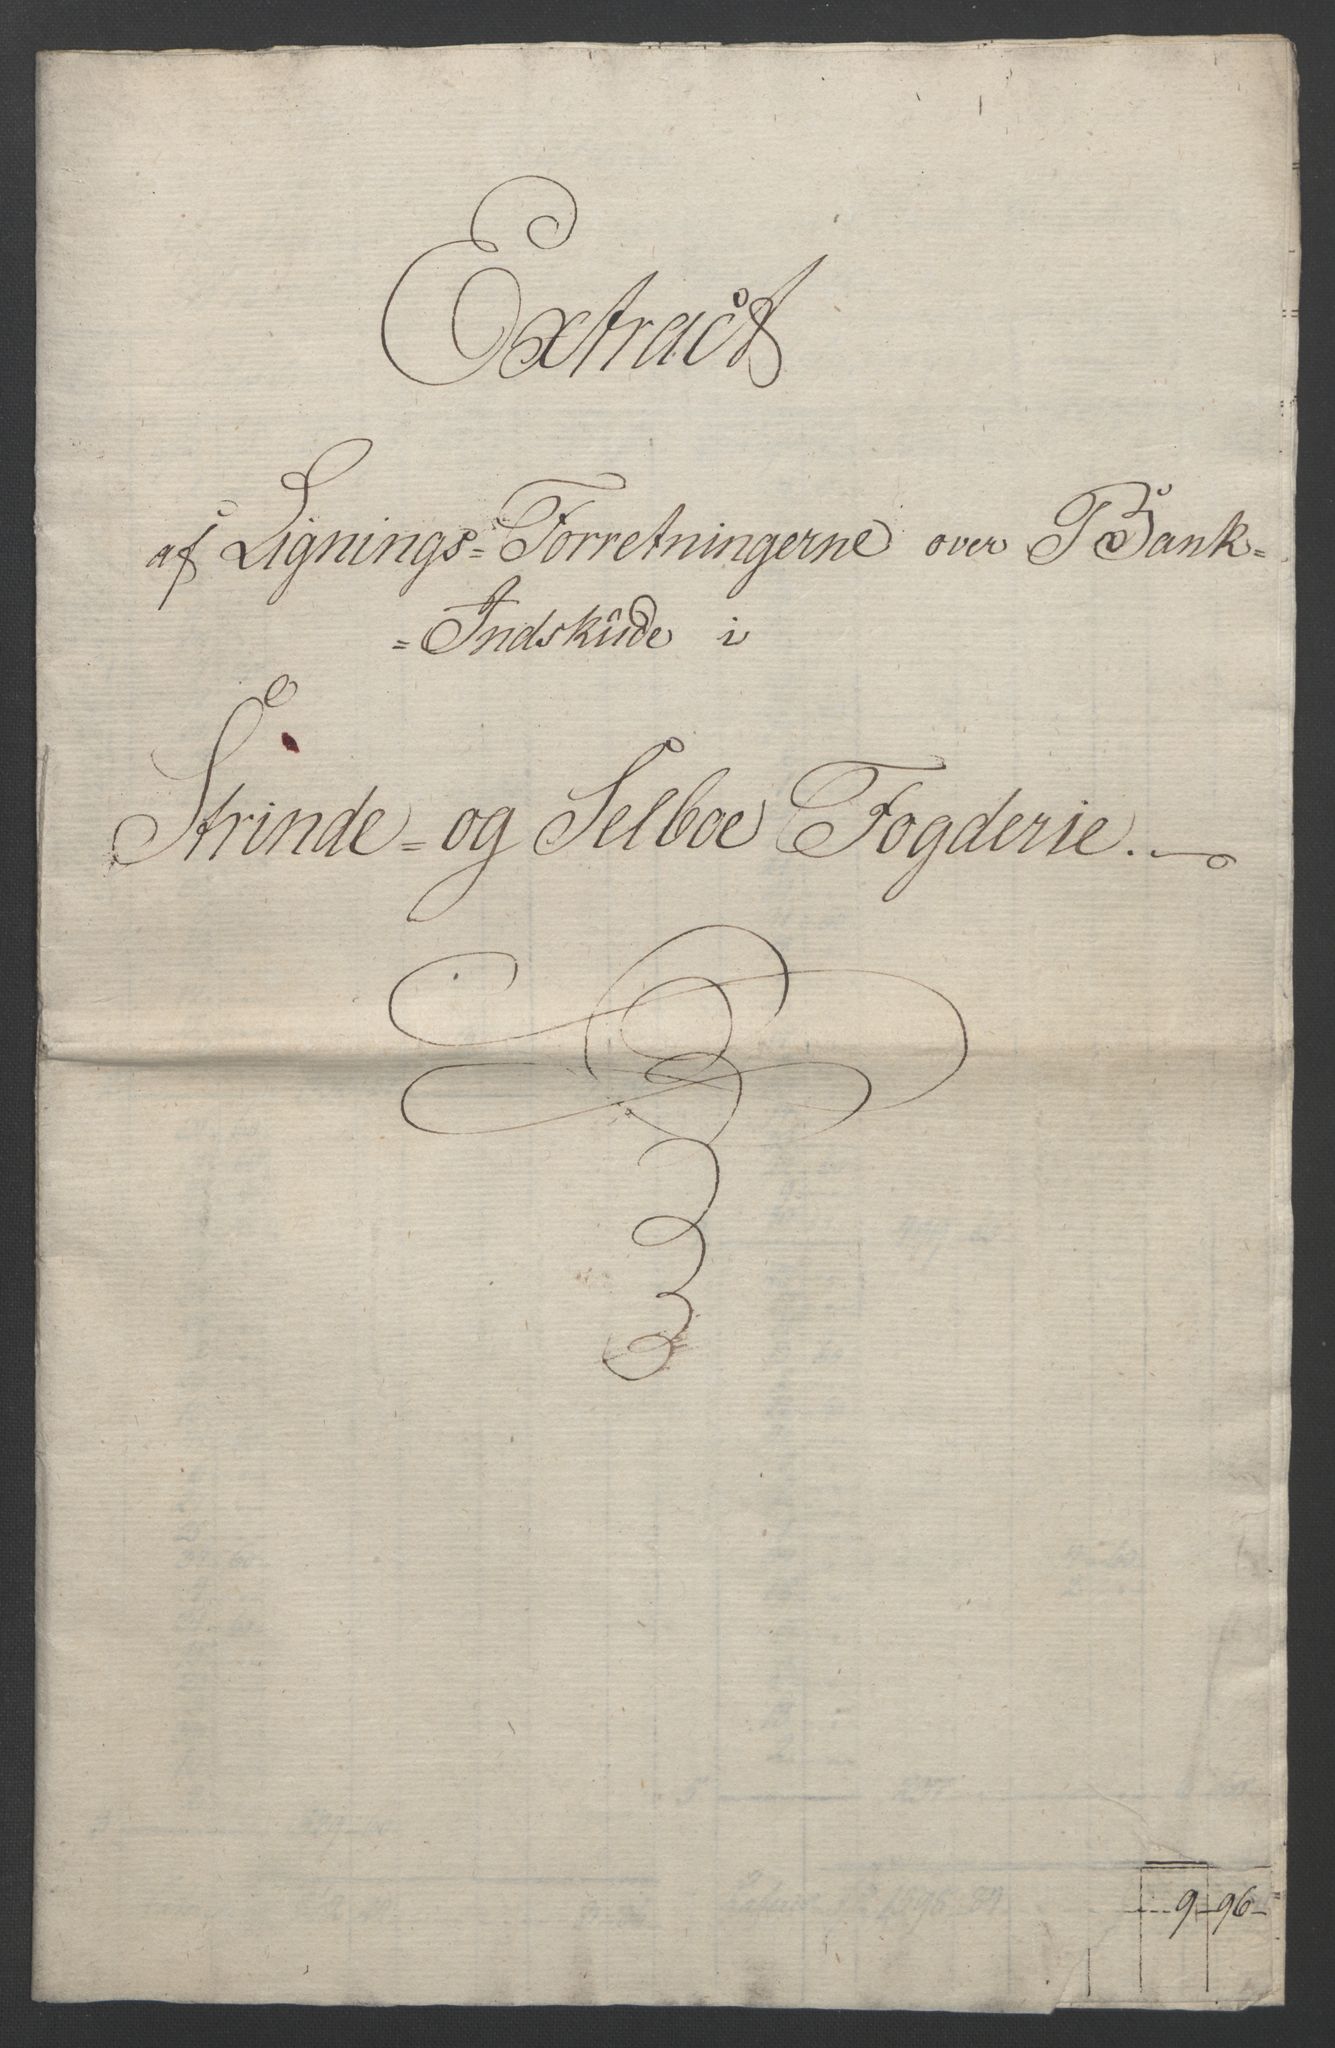 Extract
af Lignings=Forretningerne over Bank=
=Indskude i
Strinde= og Selboe Fogderie.
9 - 96 -